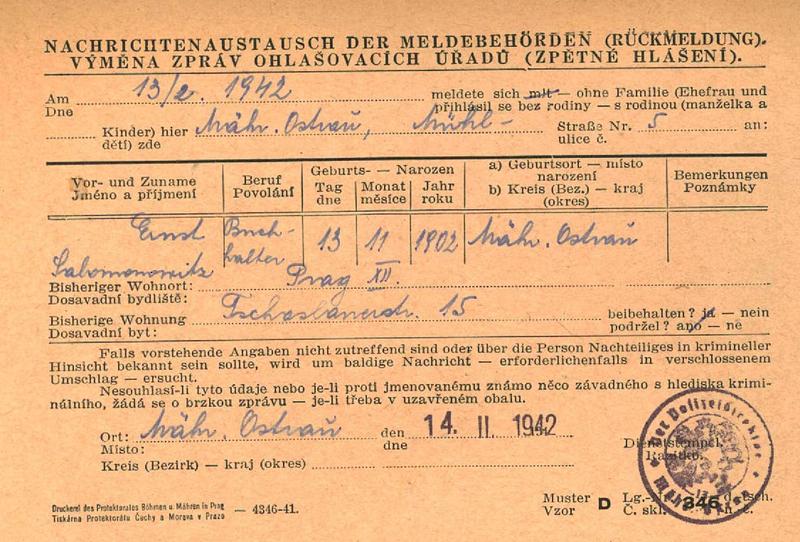 NACHRICHTENAUSTAUSCH DER MELDEBEHÖRDEN (RÜCKMELDUNG).
VÝMĚNA ZPRÁV OHLAŠOVACÍCH ÚŘADŮ (ZPĚTNÉ HLÁŠENÍ).
Am 13/2. 1942 meldete sich mit — ohne Familie (Ehefrau und
Dne přihlásil se bez rodiny — s rodinou (manželka a
Kinder) hier Mähr. Ostrau, Mühl- Straße Nr. 5 an:
děti) zde ulice č.
Vor- und Zuname Beruf Geburts- — Narozen a) Geburtsort — místo narození Bemerkungen
Jméno a příjmení Povolání Tag dne Monat měsíce Jahr roku b) Kreis (Bez.) — kraj (okres) Poznámky
Ernst Buch- 13 11 1902 Mähr. Ostrau
Salomonowitz halter
Bisheriger Wohnort: Prag XII.
Dosavadní bydliště:
Bisherige Wohnung Tschaslauerstr. 15 beibehalten? ja — nein
Dosavadní byt: podržel? ano — ne
Falls vorstehende Angaben nicht zutreffend sind oder über die Person Nachteiliges in krimineller
Hinsicht bekannt sein sollte, wird um baldige Nachricht — erforderlichenfalls in verschlossenem
Umschlag — ersucht.
Nesouhlasí-li tyto údaje nebo je-li proti jmenovanému známo něco závadného s hlediska krimi-
nálního, žádá se o brzkou zprávu — je-li třeba v uzavřeném obalu.
Ort: Mähr. Ostrau den 14. II. 1942
Místo: dne
Kreis (Bezirk) — kraj (okres)
Dienststempel.
Razítko.
Der Polizeidirektor
Mähr. Ostrau
Druckerei des Protektorates Böhmen u. Mähren in Prag
Tiskárna Protektorátu Čechy a Morava v Praze — 4346-41.
Muster D Lg.-Nr. 346 deutsch.
Vzor Č. skl. n.-č.